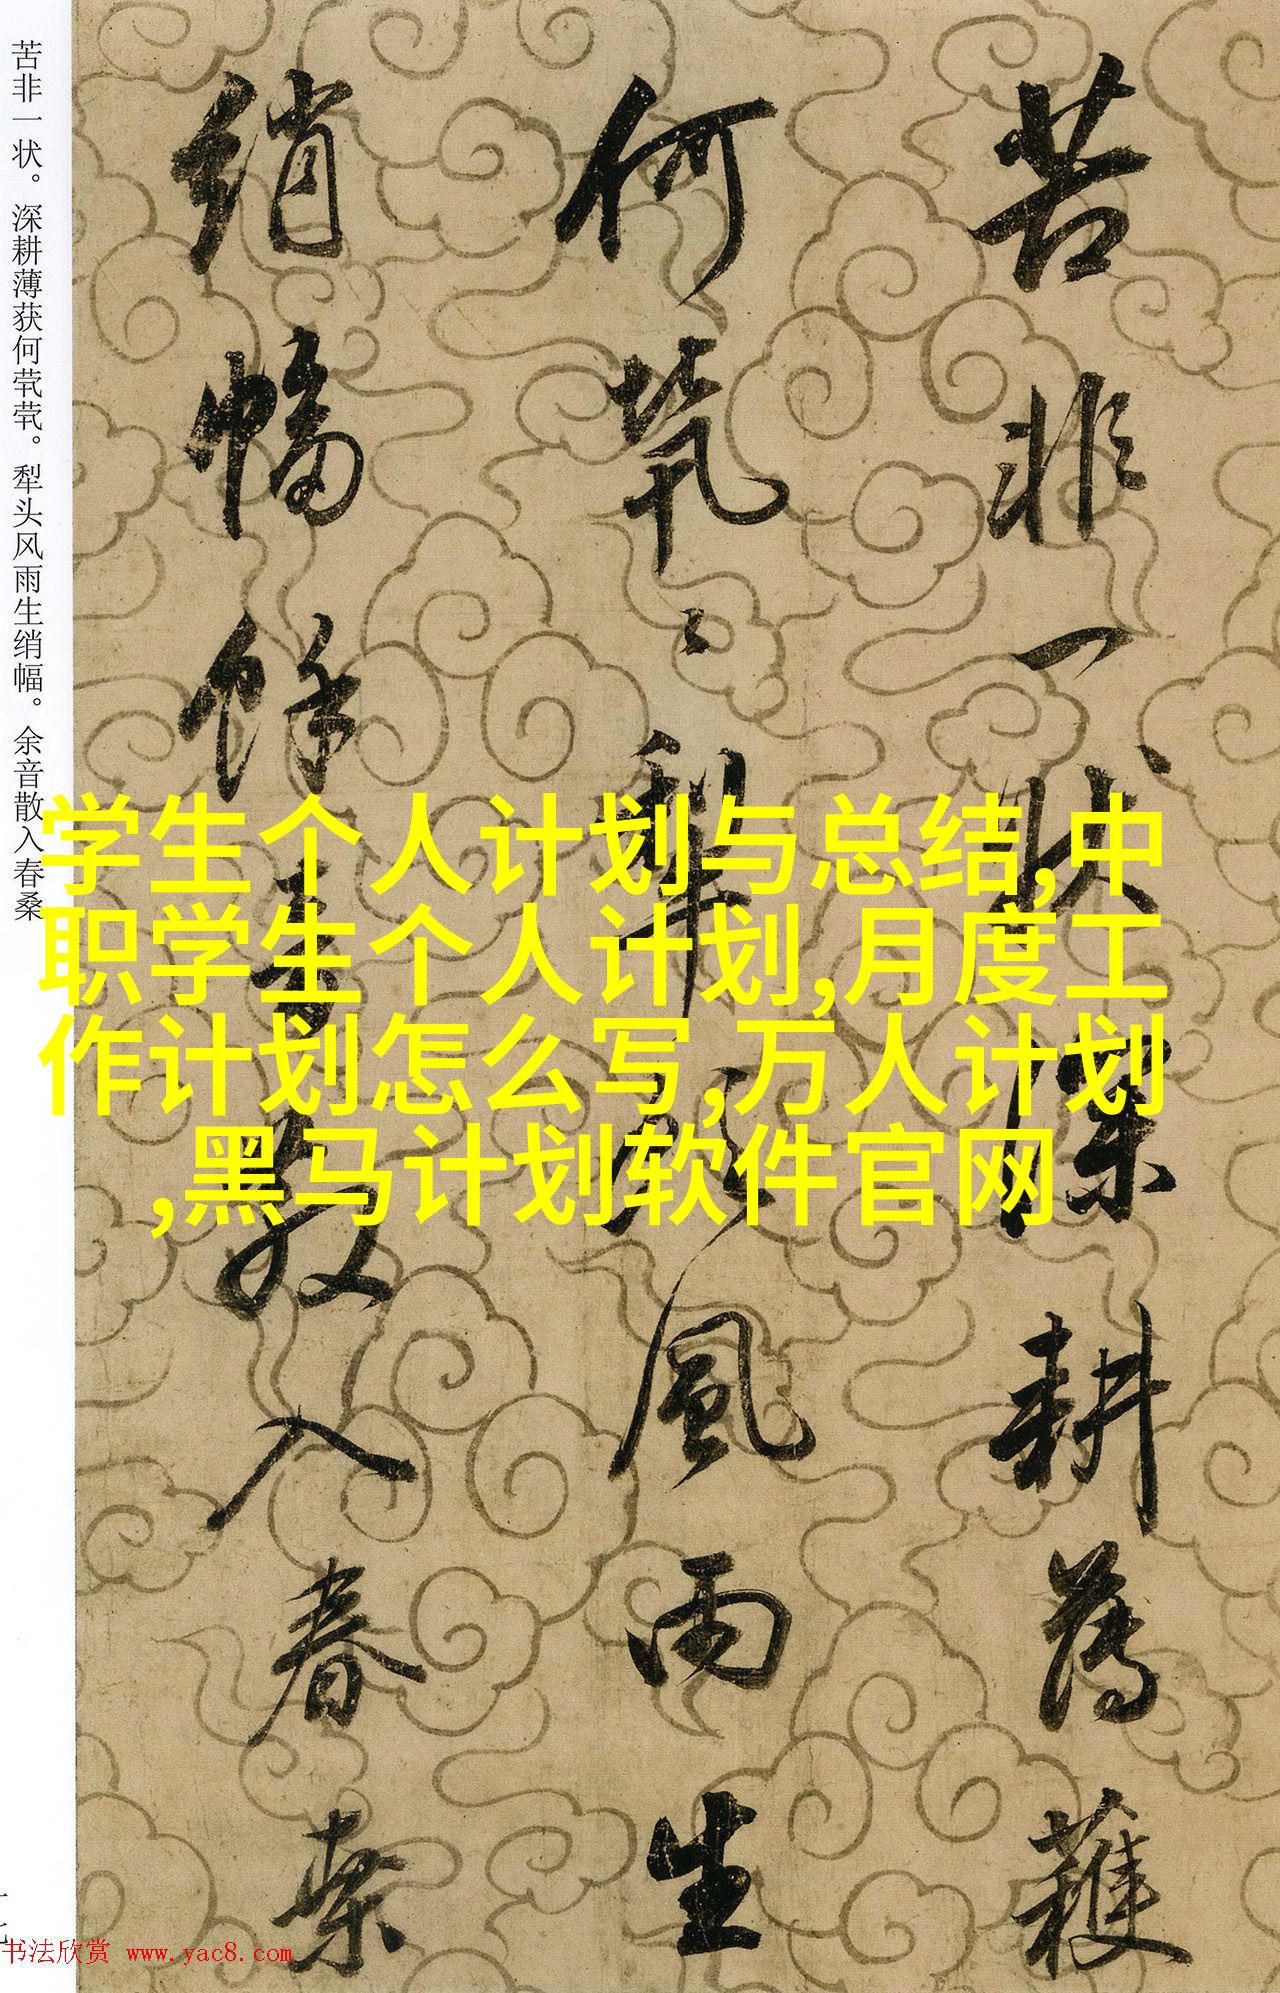 苦非一状。深耕薄获何茕茕。犁头风雨生绡幅。余音散入春桑
苦非一状深耕薄穫
何茕〻犁头風雨生
绡幅餘音散入春桑
学生个人计划与总结,中
职学生个人计划,月度工
作计划怎么写,万人计划
,黑马计划软件官网
十七
书法欣赏 www.yac8.com